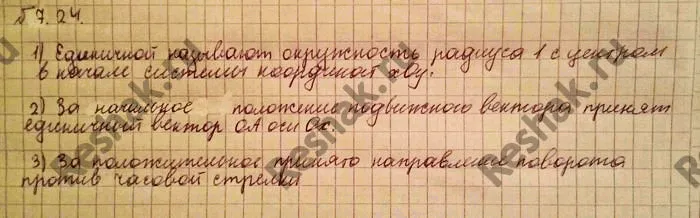 № 7.24.
1) Единичной называют окружность радиуса 1 с центром
в начале системы координат xOy.
2) За начальное положение подвижного вектора принят
единичный вектор OA оси Ox.
3) За положительное принято направление поворота
против часовой стрелки
Reshak.ru
Reshak.ru
Reshak.ru